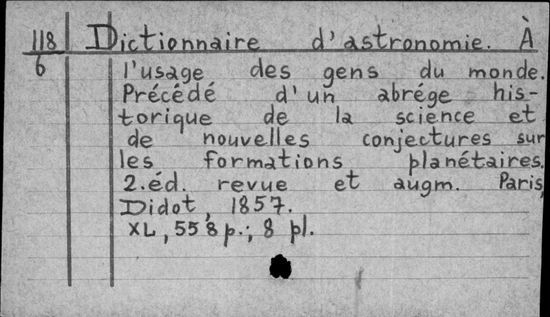 118 Dictionnaire d'astronomie. À
6 l'usage des gens du monde.
Précédé d'un abrége his-
torique de la science et
de nouvelles conjectures sur
les formations planétaires.
2.éd. revue et augm. Paris,
Didot, 1857.
XL, 558 p.; 8 pl.